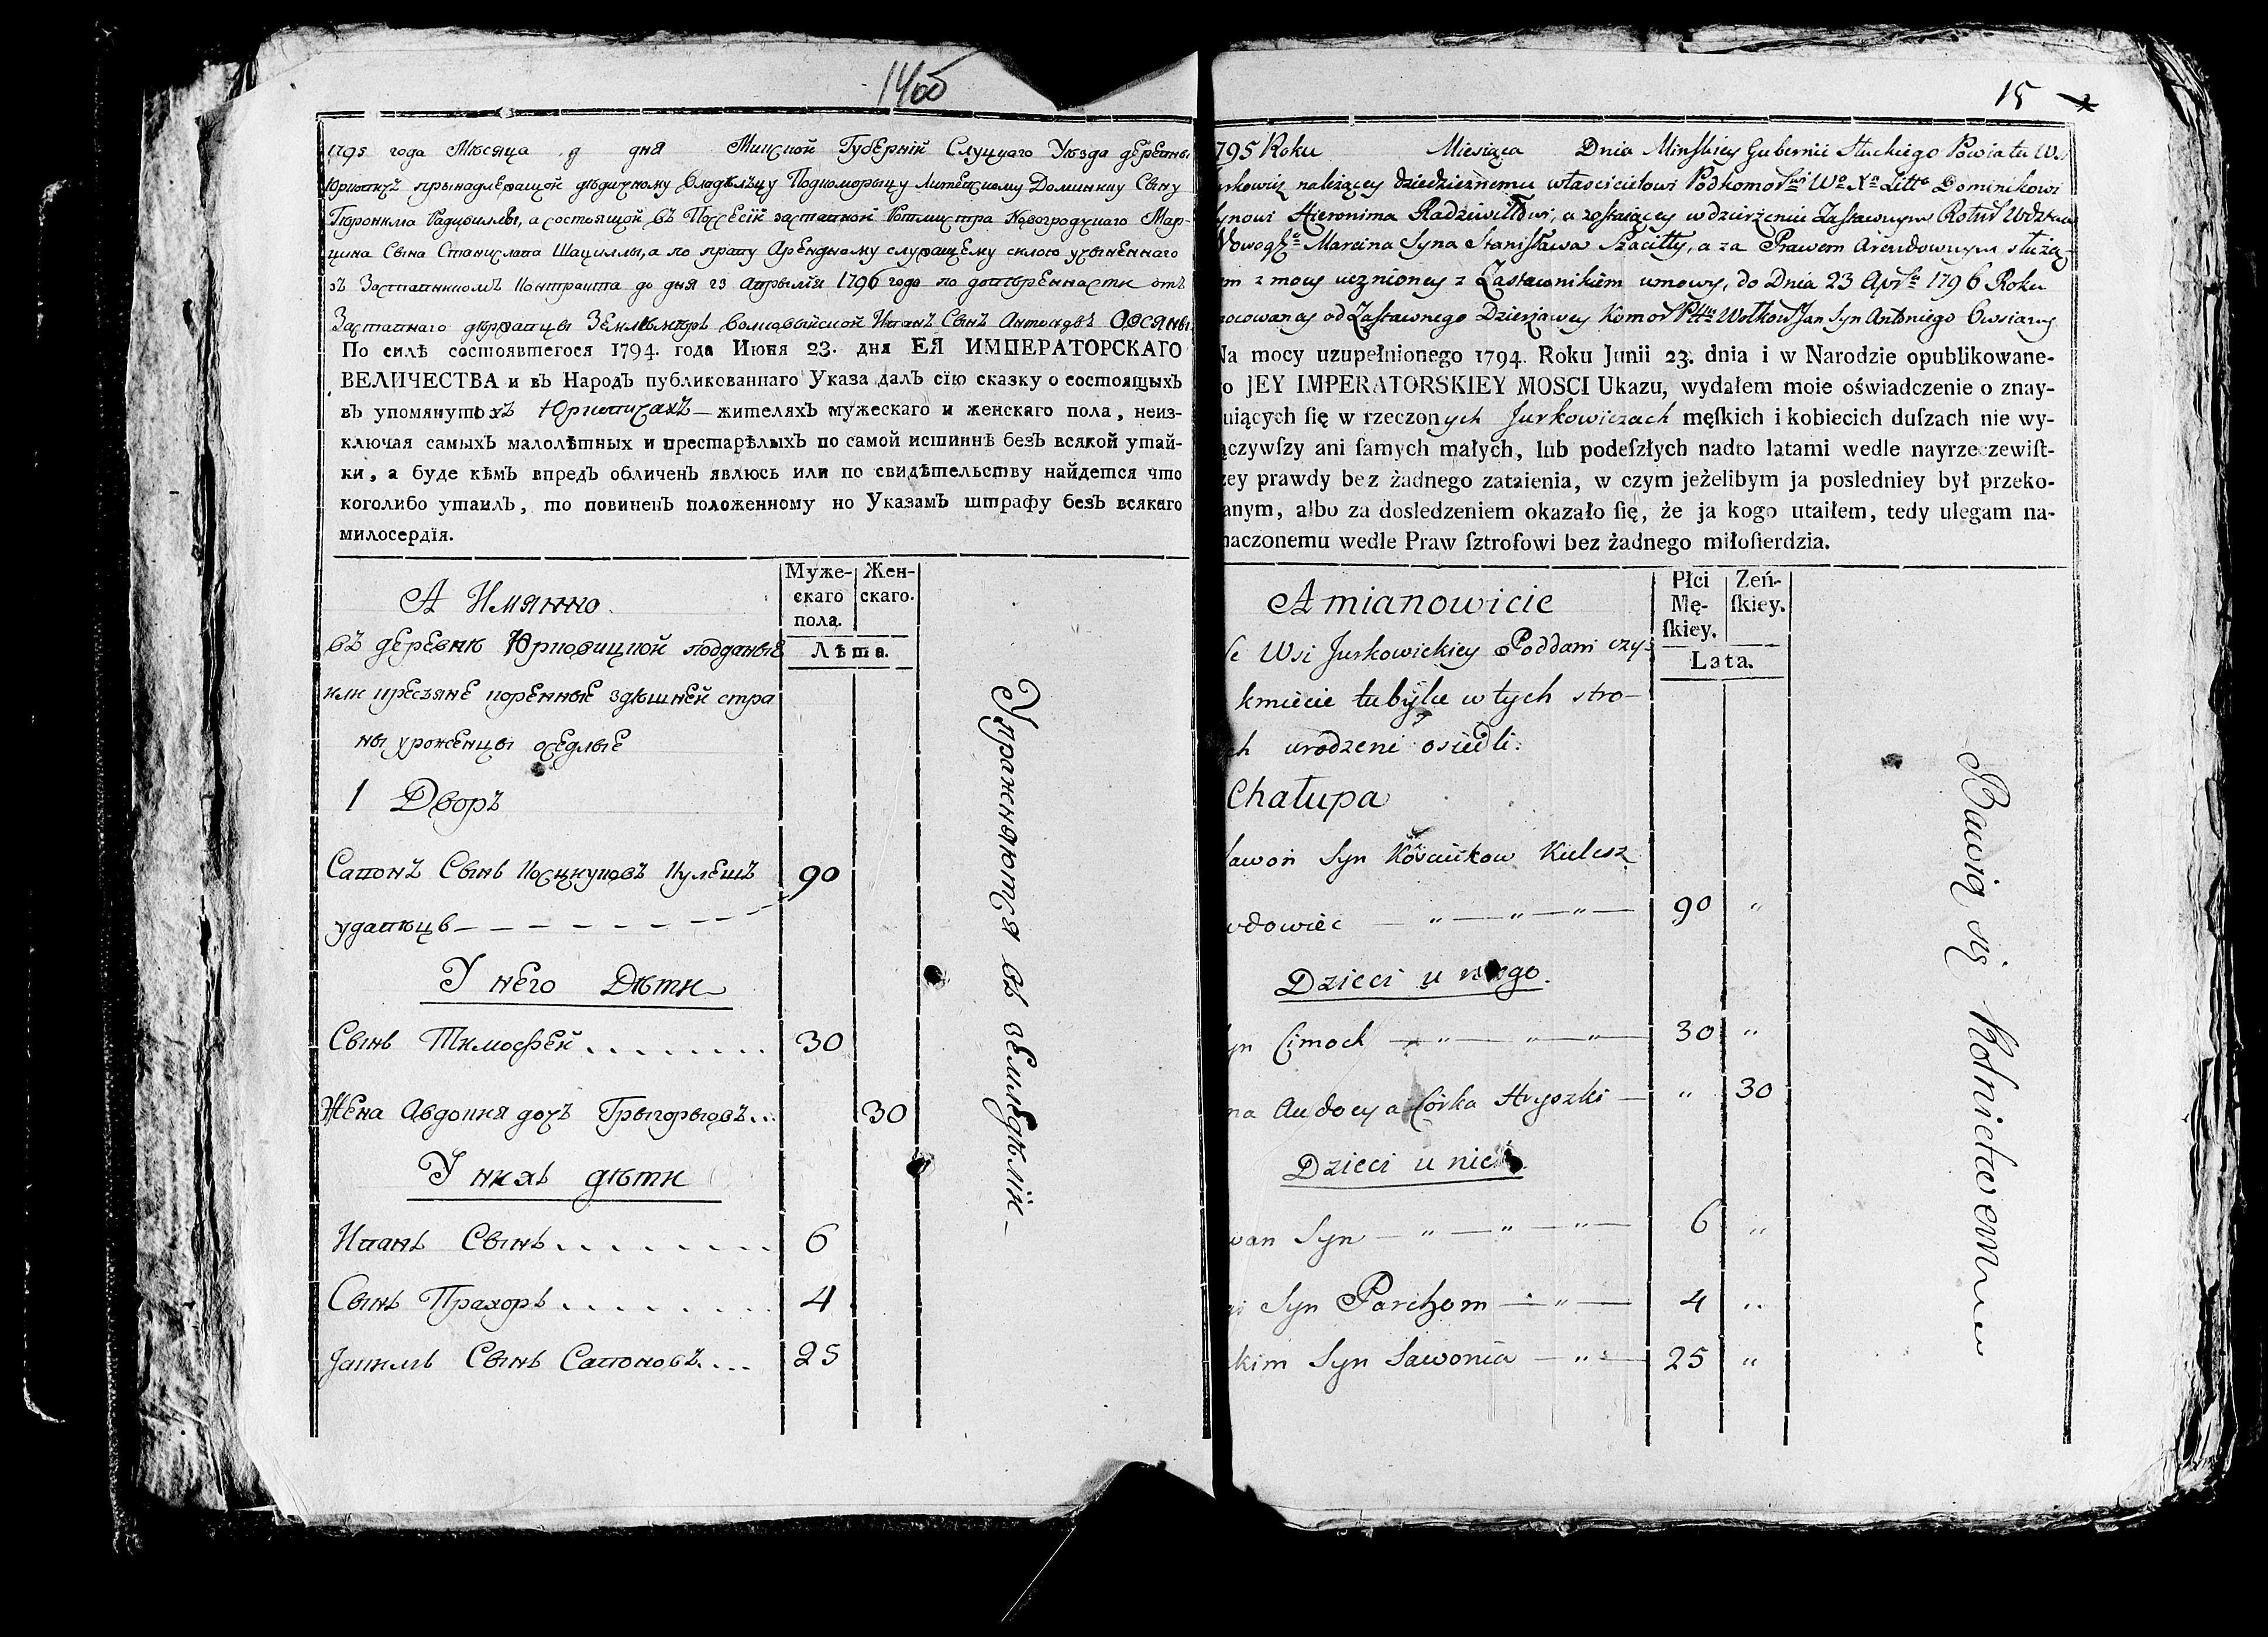 14об
1795 года Мѣсяца д дня Минской Губерній Слуцкаго Уѣзда деревны
Юрковичъ принадлежащой дѣдичному владѣльцу Подкоморыцу Литевскому Доминику Сыну
Гіронима Радивиллы, а состоящой въ Посесій заставной Ротмистра Новогродскаго Мар-
цина Сына Станислава Шациллы, а по праву Арендному служащему силою учыненнаго
зъ Заставникомъ Контракта до дня 23 Апрыля 1796 года по довѣренности отъ
Заставнаго держацы Землемѣръ Волковыйской Иванъ Сынъ Антоновъ Овсяны
По силѣ состоявшегося 1794. года Июня 23. дня ЕЯ ИМПЕРАТОРСКАГО
ВЕЛИЧЕСТВА и въ Народъ публикованнаго Указа далъ сїю сказку о состоящыхъ
въ упомянутохъ Юрковичахъ — жителяхъ мужескаго и женскаго пола, неиз-
ключая самыхъ малолѣтныхъ и престарѣлыхъ по самой истиннѣ безъ всякой утай-
ки, а буде кѣмъ впредъ обличенъ явлюсь или по свидѣтельству найдется что
коголибо утаилъ, то повиненъ положенному но Указамъ штрафу безъ всякаго
милосердїя.
А Имянно
Муже-
скаго
пола.
Жен-
скаго.
Лѣта.
въ деревнѣ Юрковицкой подданые
или крестяне коренные здѣшней стра
ны уроженцы оседлые
1 Дворъ
Савонъ Сынъ Кулешъ 90
удавѣцъ
У него Дѣти
Сынъ Тимосфей 30
Жена Авдокия дочъ Грыгорыовъ 30
У нихъ дѣти
Иванъ Сынъ 6
Сынъ Прахоръ 4
Јакимъ Сынъ Савоновъ 25
Упражняются въ земледѣлій
15
795 Roku Miesiąca Dnia Minskiey Gubernii Słuckiego Powiatu Wsi
urkowicz należącey dziedzicznemu włascicielowi Dominikowi
synowi Hieronima Radziwiłłowi, a zostaiącey w dzierżeniu Zastawnym
Marcina Syna Stanisława Szaciłły, a za Prawem Arendownym służą-
em z mocy ucznioney z Zastawnikiem umowy, do Dnia 23 Apr 1796 Roku
mocowany od Zastawnego Dzierżawcy Jan Syn Antoniego Owsiany
Na mocy uzupełnionego 1794. Roku Junii 23. dnia i w Narodzie opublikowane-
o JEY IMPERATORSKIEY MOSCI Ukazu, wydałem moie oświadczenie o znay-
uiących ſię w rzeczonych Jurkowiczach męſkich i kobiecich duſzach nie wy-
ączywſzy ani ſamych małych, lub podeſzłych nadto latami wedle nayrzeczewiſt-
zey prawdy bez żadnego zataienia, w czym jeżelibym ja posledniey był przeko-
anym, albo za dosledzeniem okazało ſię, że ja kogo utaiłem, tedy ulegam na-
naczonemu wedle Praw ſztrofowi bez żadnego miłoſierdzia.
A mianowicie
Płci
Mę-
ſkiey.
Zeń-
ſkiey.
Lata.
We Wsi Jurkowickiey Poddani czy-
kmiecie tubylce w tych stro-
ch urodzeni osiedli:
Chałupa
Sawon Syn Kulesz
wdowiec 90 "
Dzieci u niego.
yn Cimoch 30 "
na Audocya Córka Hryszki " 30
Dzieci u nich
wan Syn 6 "
gi Syn Parchom 4 "
kim Syn Sawonia 25 "
Bawią się Rolnictwem